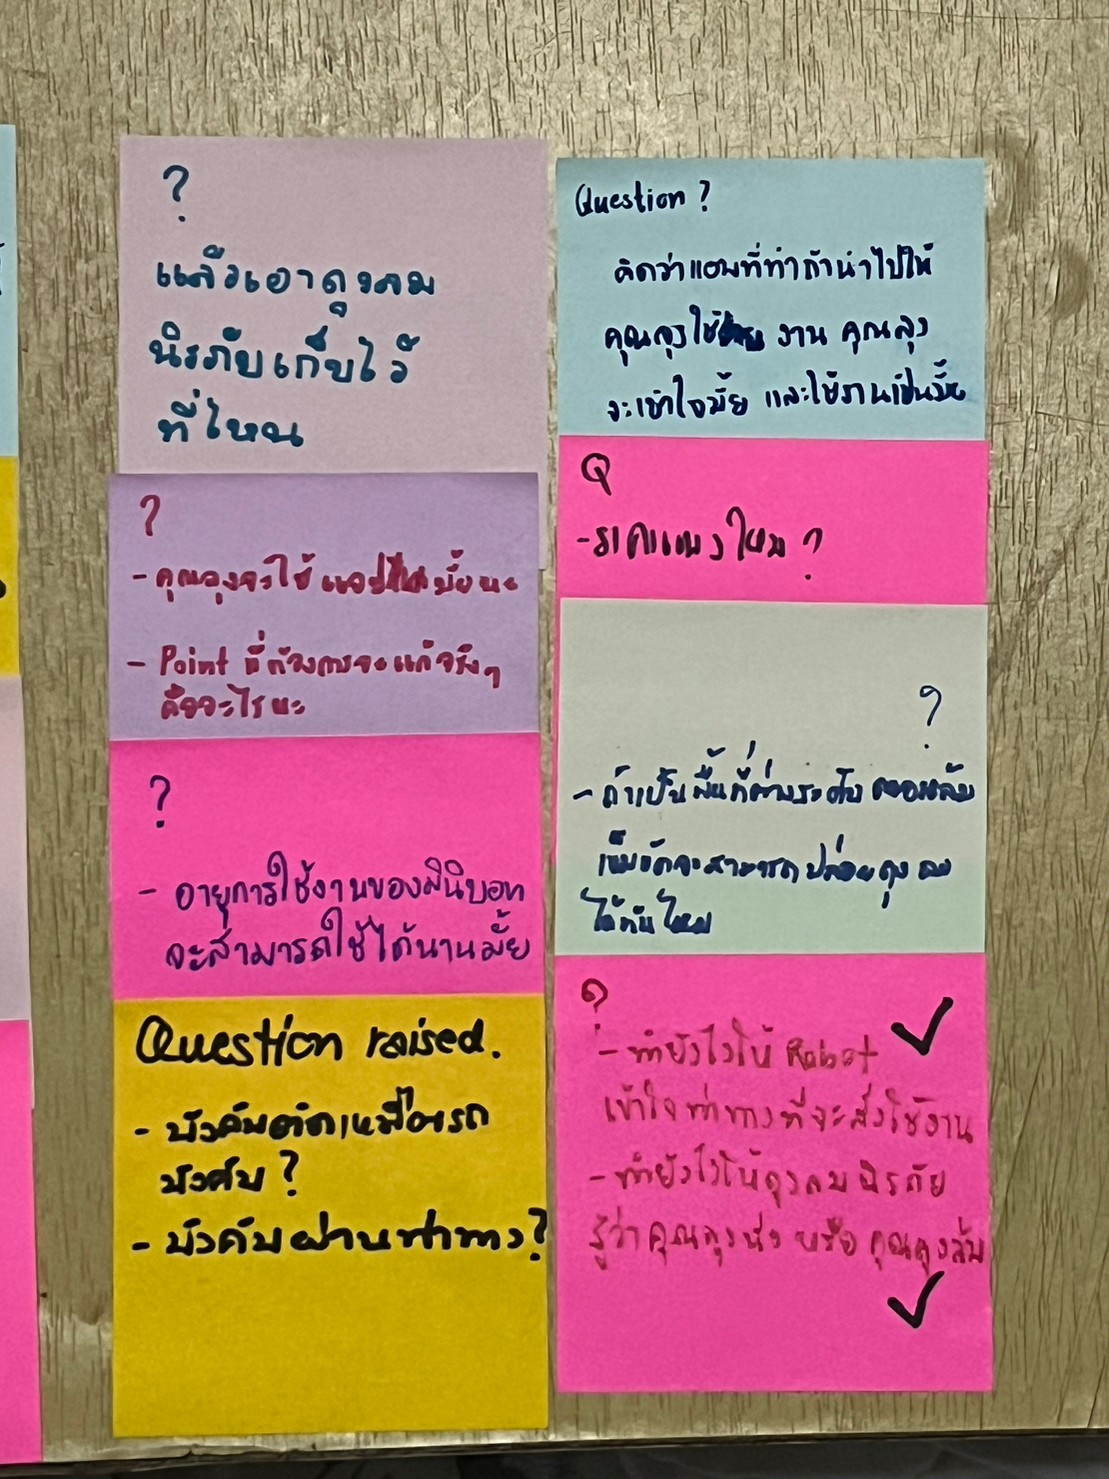 ?
แล้วเอาถุงลม
นิรภัยเก็บไว้
ที่ไหน
?
- คุณลุงจะใช้ แอป มั้ยนะ
- Point ที่ต้องการจะแก้จริงๆ
คืออะไรนะ
?
- อายุการใช้งานของมินิบอท
จะสามารถใช้ได้นานมั้ย
Question raised.
- บังคับตัดเหมือนรถ
บังคับ?
- บังคับผ่านท่าทาง?
Question?
คิดว่าแอพที่ทำถ้านำไปให้
คุณลุงใช้ งาน คุณลุง
จะเข้าใจมั้ย และใช้งานเป็นมั้ย
Q
- ราคาแพงไหม?
?
- ถ้าเป็น พื้นที่ต่างระดับ ตอนล้ม
เข็มขัดจะสามารถ ปล่อยถุง ลม
ได้ทันไหม
?
- ทำยังไงให้ Robot
เข้าใจท่าทางที่จะสั่งใช้งาน
- ทำยังไงให้ถุงลมนิรภัย
รู้ว่าคุณลุงนั่ง หรือ คุณลุงล้ม